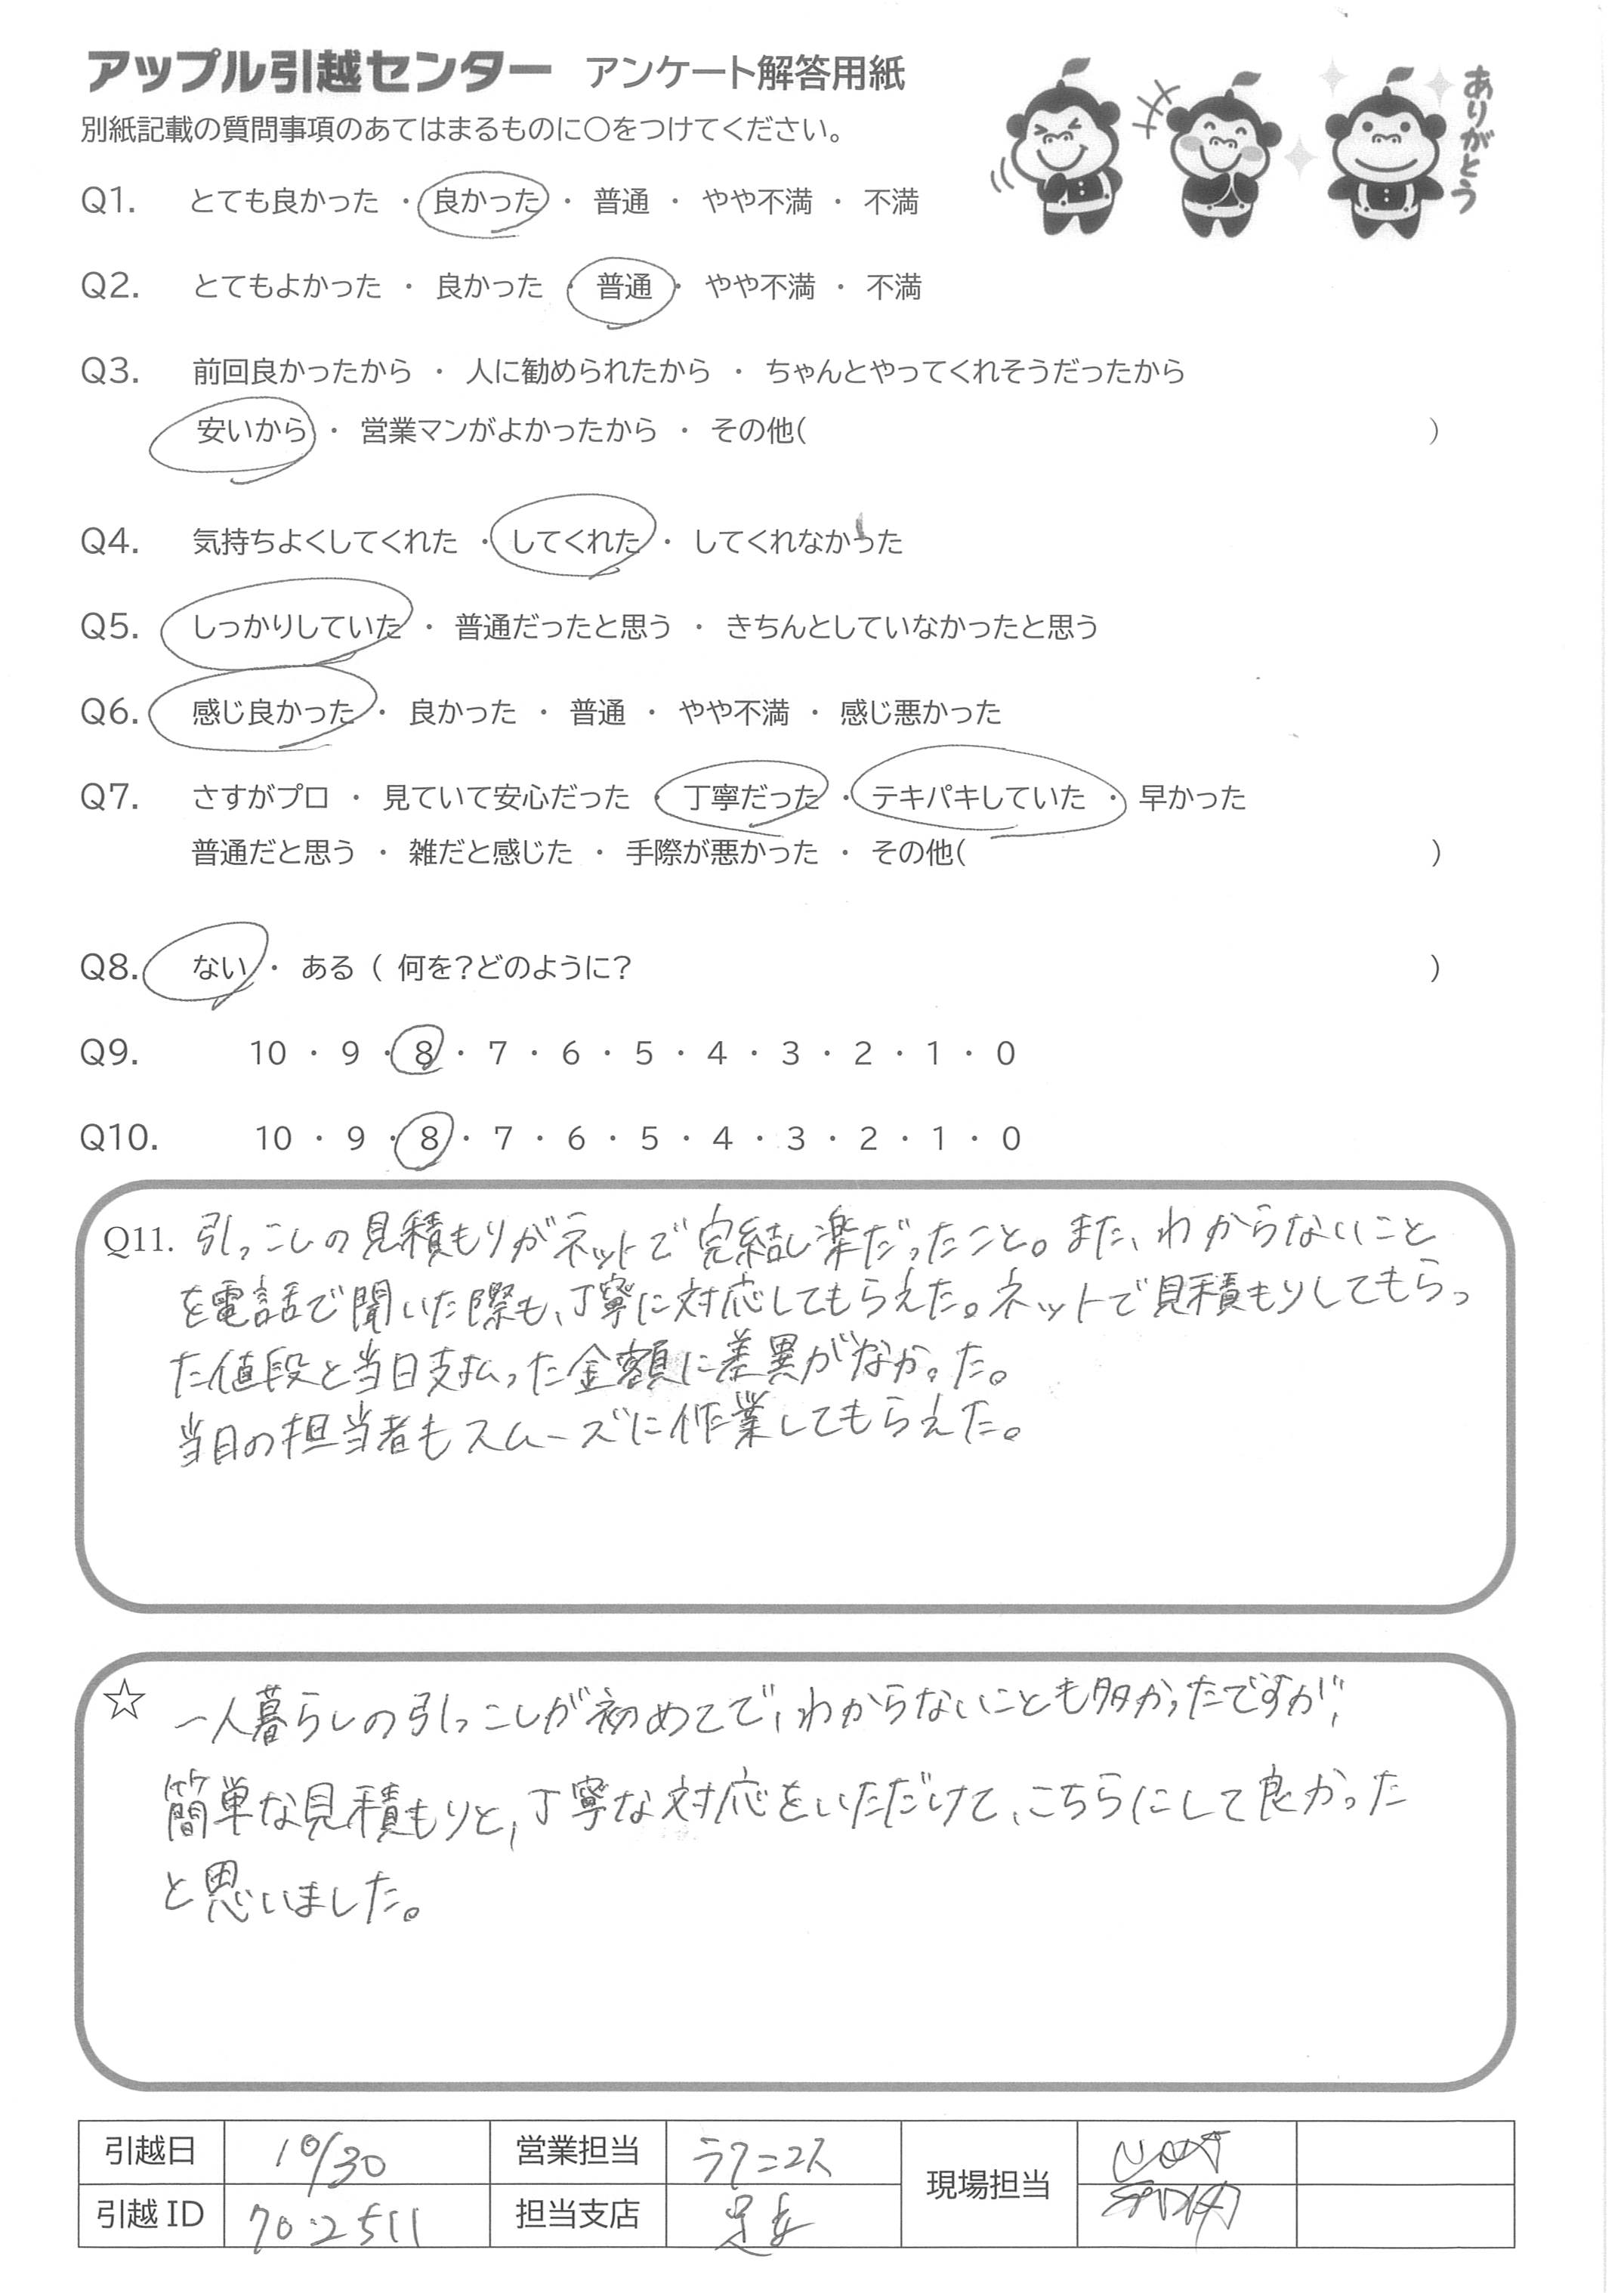 アップル引越センター アンケート解答用紙
別紙記載の質問事項のあてはまるものに○をつけてください。
ありがとう
Q1. とても良かった ・ 良かった ・ 普通 ・ やや不満 ・ 不満
Q2. とてもよかった ・ 良かった ・ 普通 ・ やや不満 ・ 不満
Q3. 前回良かったから ・ 人に勧められたから ・ ちゃんとやってくれそうだったから
安いから ・ 営業マンがよかったから ・ その他( )
Q4. 気持ちよくしてくれた ・ してくれた ・ してくれなかった
Q5. しっかりしていた ・ 普通だったと思う ・ きちんとしていなかったと思う
Q6. 感じ良かった ・ 良かった ・ 普通 ・ やや不満 ・ 感じ悪かった
Q7. さすがプロ ・ 見ていて安心だった ・ 丁寧だった ・ テキパキしていた ・ 早かった
普通だと思う ・ 雑だと感じた ・ 手際が悪かった ・ その他( )
Q8. ない ・ ある ( 何を?どのように? )
Q9. 10 ・ 9 ・ 8 ・ 7 ・ 6 ・ 5 ・ 4 ・ 3 ・ 2 ・ 1 ・ 0
Q10. 10 ・ 9 ・ 8 ・ 7 ・ 6 ・ 5 ・ 4 ・ 3 ・ 2 ・ 1 ・ 0
Q11. 引っこしの見積もりがネットで完結し楽だったこと。また、わからないこと
を電話で聞いた際も、丁寧に対応してもらえた。ネットで見積もりしてもらっ
た値段と当日支払った金額に差異がなかった。
当日の担当者もスムーズに作業してもらえた。
☆ 一人暮らしの引っこしが初めてで、わからないことも多かったですが、
簡単な見積もりと、丁寧な対応をいただけて、こちらにして良かった
と思いました。
引越日 10/30 営業担当 ラクニコス 現場担当
引越 ID 70-2511 担当支店 足立